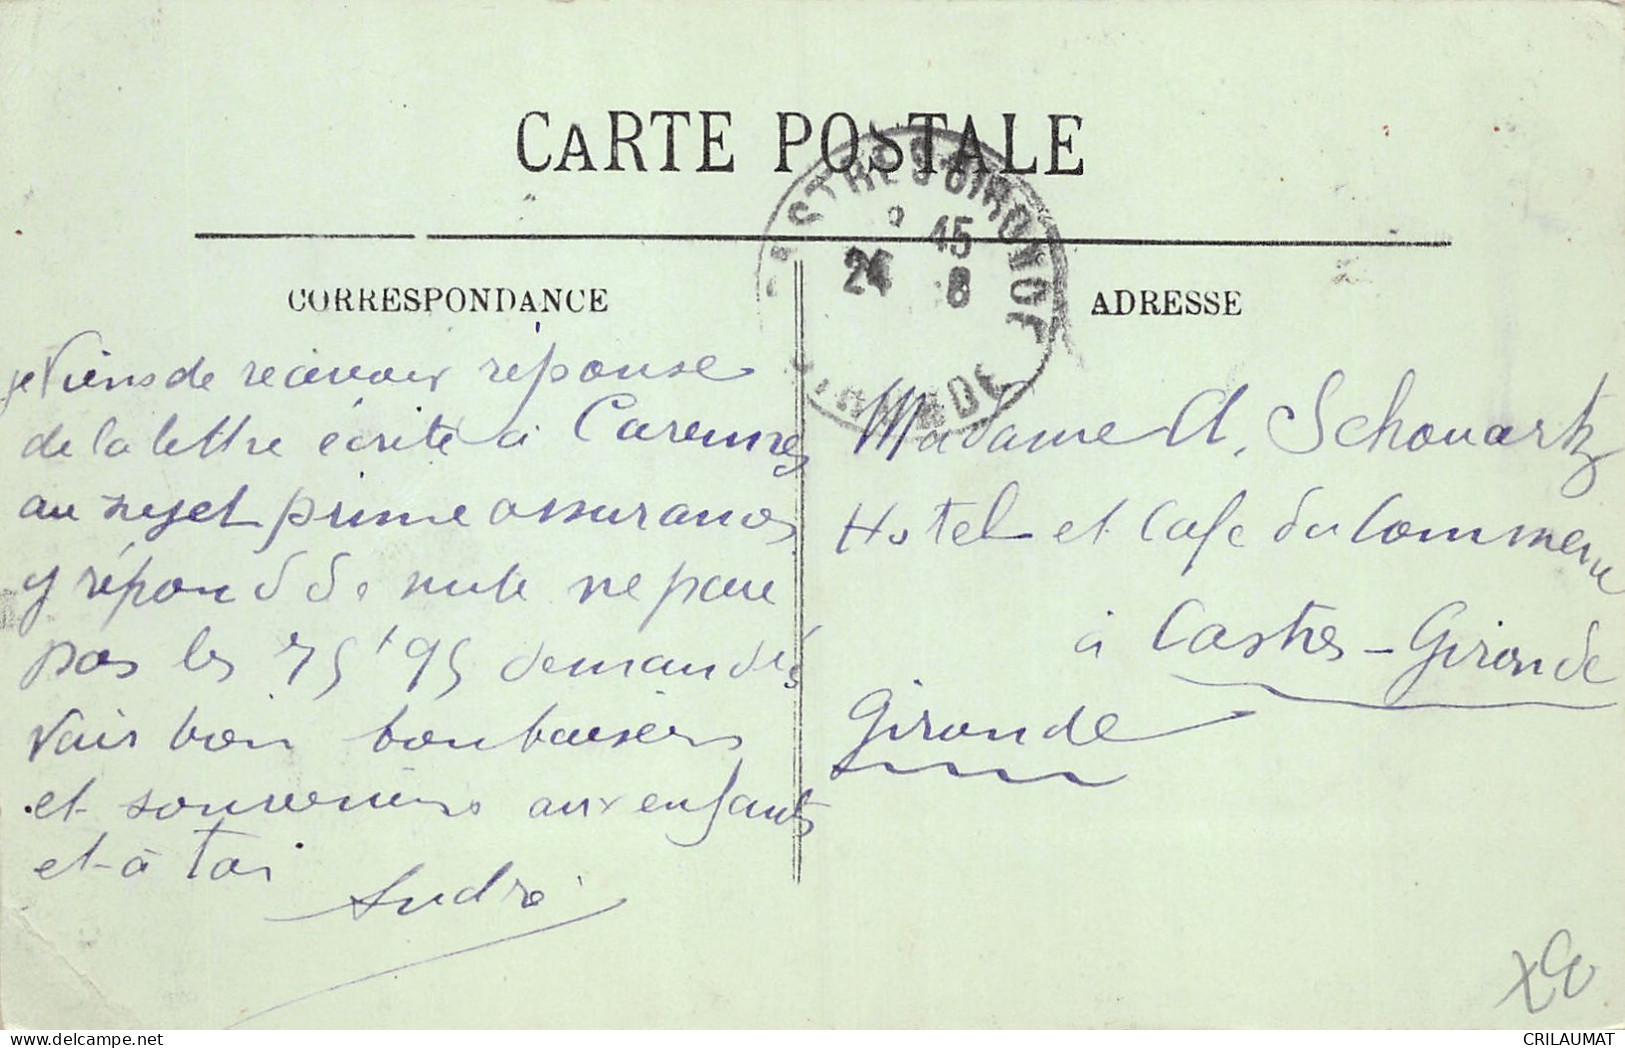 CARTE POSTALE
CASTRES GIRONDE
15
24 8
GIRONDE
CORRESPONDANCE
je viens de recevoir réponse
de la lettre écrite à
au sujet prime assurances
y répond de suite ne paie
pas les 75f95 demandés
bon bons baisers
et souvenirs aux enfants
et à toi
André
ADRESSE
Madame A. Schouartz
Hotel et Cafe du Commerce
à Castres-Gironde
Gironde
CRILAUMAT